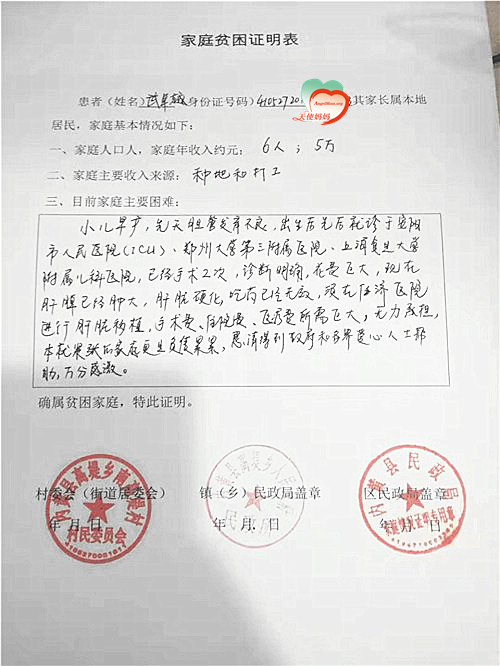 家庭贫困证明表
患者（姓名）武 身份证号码）41052720 及其家长属本地
Angelmom.org
天使妈妈
居民，家庭基本情况如下：
一、家庭人口人，家庭年收入约元： 6人；5万
二、家庭主要收入来源： 种地和打工
三、目前家庭主要困难：
小儿早产，先天胆管发育不良，出生后先后就诊于安阳
市人民医院（ICU）、郑州大学第三附属医院、上海复旦大学
附属儿科医院，已经手术2次，诊断明确，花费巨大，现在
肝脾已经肿大，肝脏硬化，吃药已经无效，须在 医院
进行肝脏移植，手术费、住院费、医药费所需巨大，无力承担，
本就 的家庭更是负债累累，恳请得到政府和各界爱心人士帮
助，万分感激。
确属贫困家庭，特此证明。
内黄县高堤乡南 堤村
村民委员会
内黄县高堤乡人
民
内黄县民政局
村委会（街道居委会） 镇（乡）民政局盖章 区民政局盖章
年 月 日 年 月 日 年 月 日